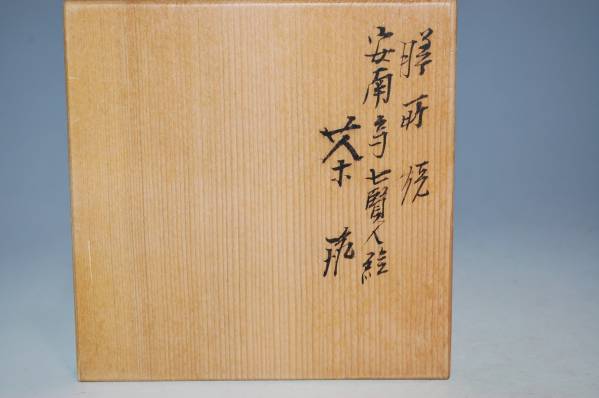 膳所焼
安南写七賢人絵
茶碗